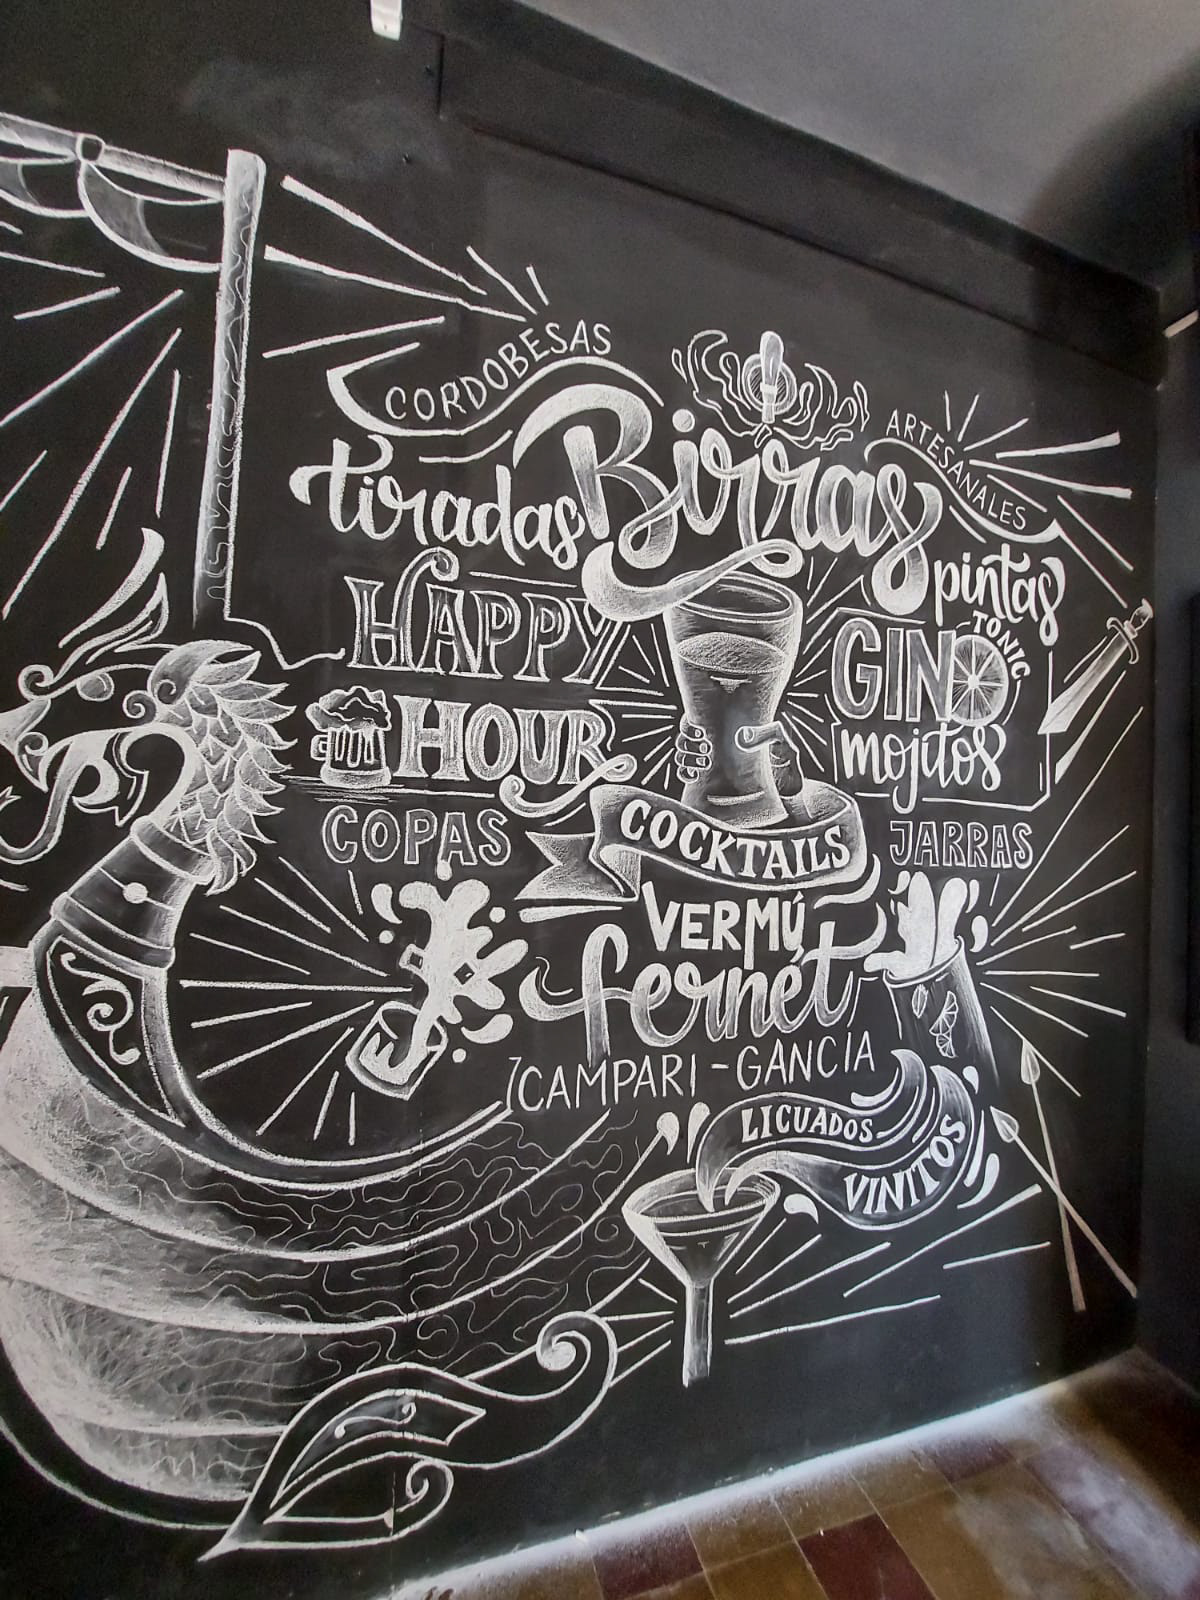 CORDOBESAS
tiradas Birras
ARTESANALES
pintas
HAPPY
HOUR
GIN
TONIC
mojitos
COPAS
COCKTAILS
JARRAS
VERMÚ
fernet
CAMPARI - GANCÍA
LICUADOS
VINITOS